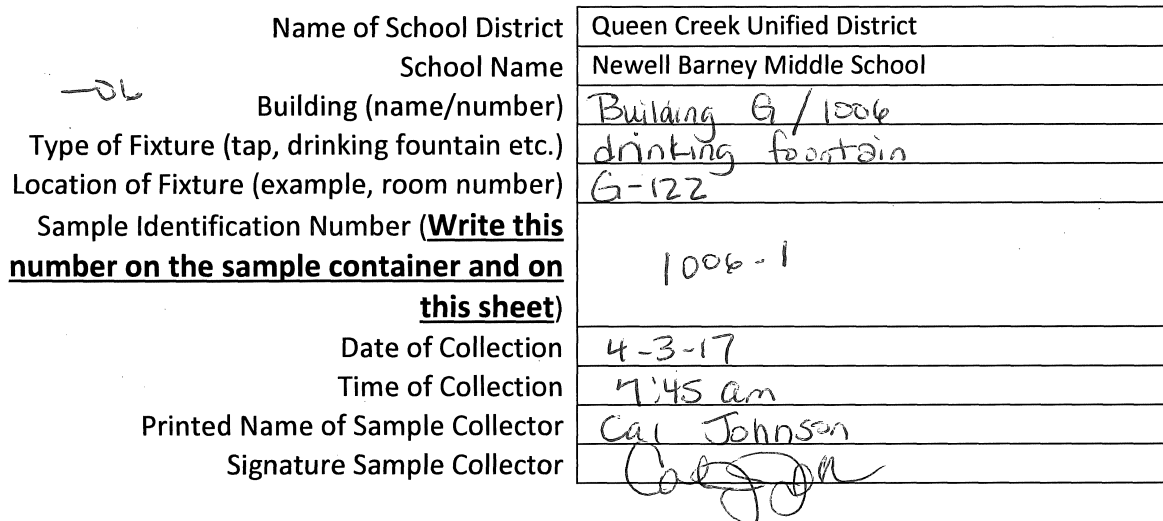 Name of School District Queen Creek Unified District
School Name Newell Barney Middle School
-06
Building (name/number) Building G / 1006
Type of Fixture (tap, drinking fountain etc.) drinking fountain
Location of Fixture (example, room number) G-122
Sample Identification Number (Write this
number on the sample container and on 1006-1
this sheet)
Date of Collection 4-3-17
Time of Collection 7:45 am
Printed Name of Sample Collector Cal Johnson
Signature Sample Collector